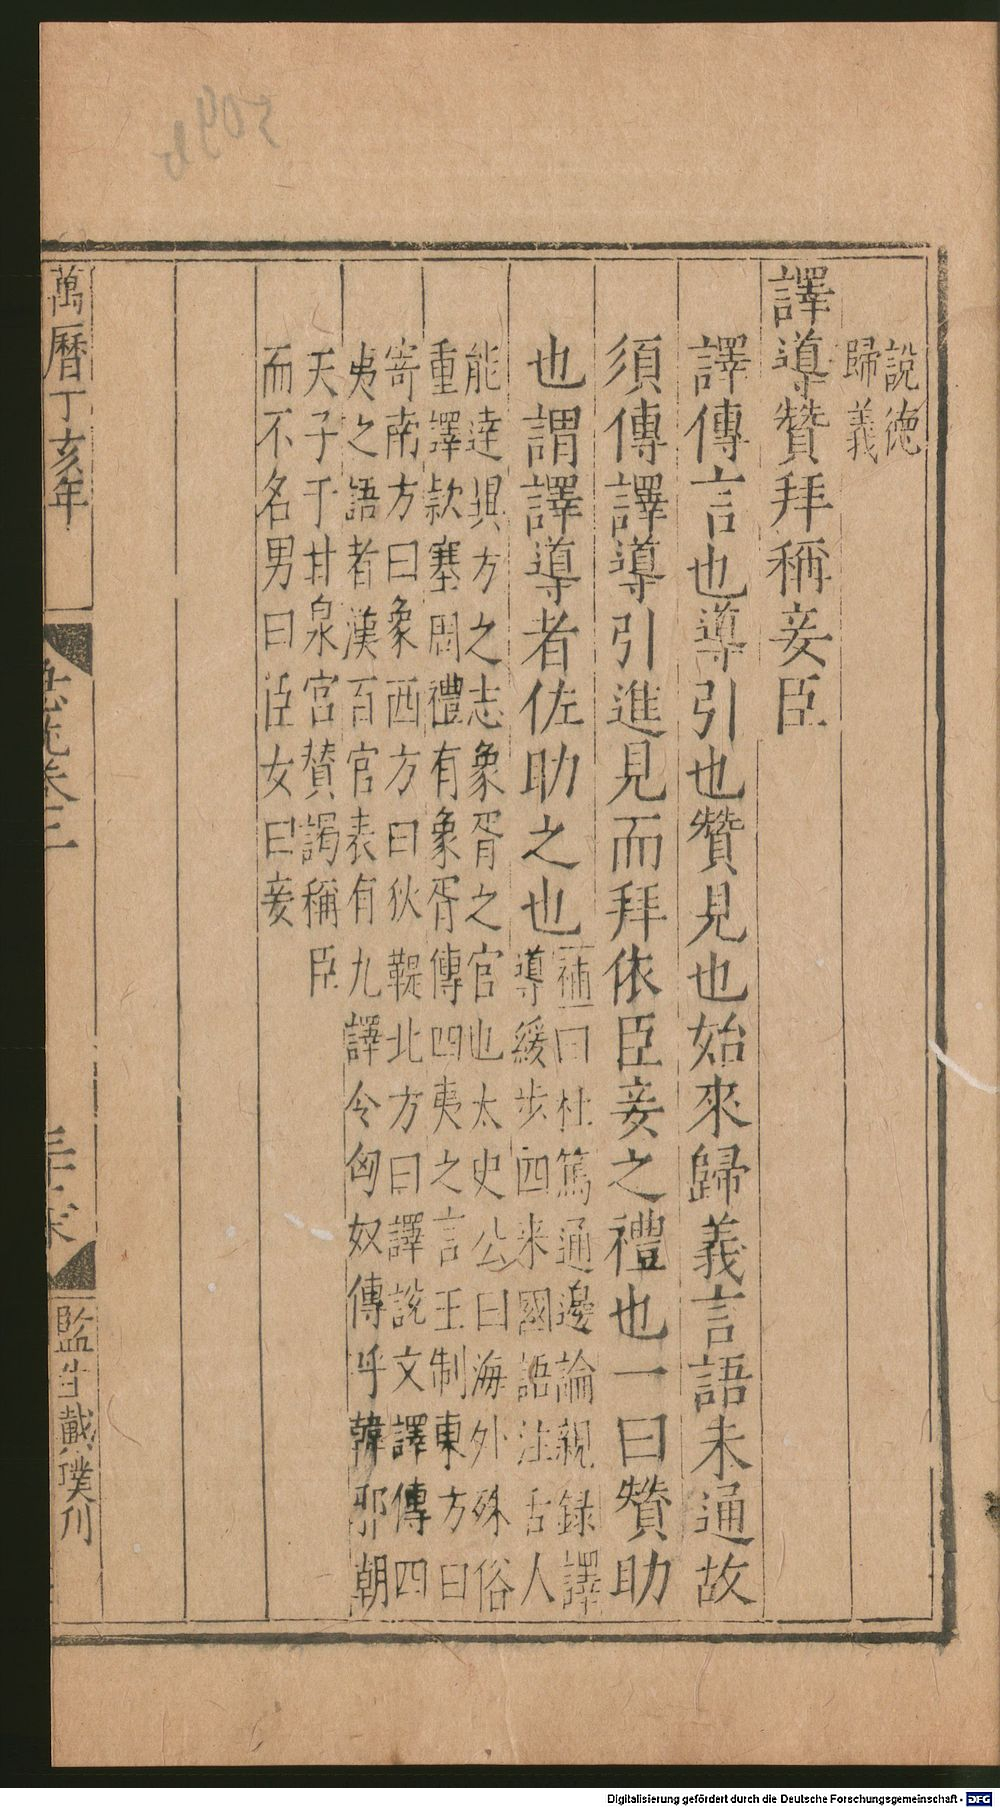 說德
歸義
譯導贊拜稱妾臣
譯傳言也導引也贊見也始來歸義言語未通故
須傳譯導引進見而拜依臣妾之禮也一曰贊助
也謂譯導者佐助之也
補曰杜篤通邊論親録譯
導緩步四來國語注舌人
能達異方之志象胥之官也太史公曰海外殊俗
重譯款塞周禮有象胥傳四夷之言王制東方曰
寄南方曰象西方曰狄鞮北方曰譯說文譯傳四
夷之語者漢百官表有九譯令匈奴傳呼韓邪朝
天子于甘泉宮贊謁稱臣
而不名男曰臣女曰妾
萬曆丁亥年
急就卷三
監生戴璞刋
Digitalisierung gefördert durch die Deutsche Forschungsgemeinschaft - DFG